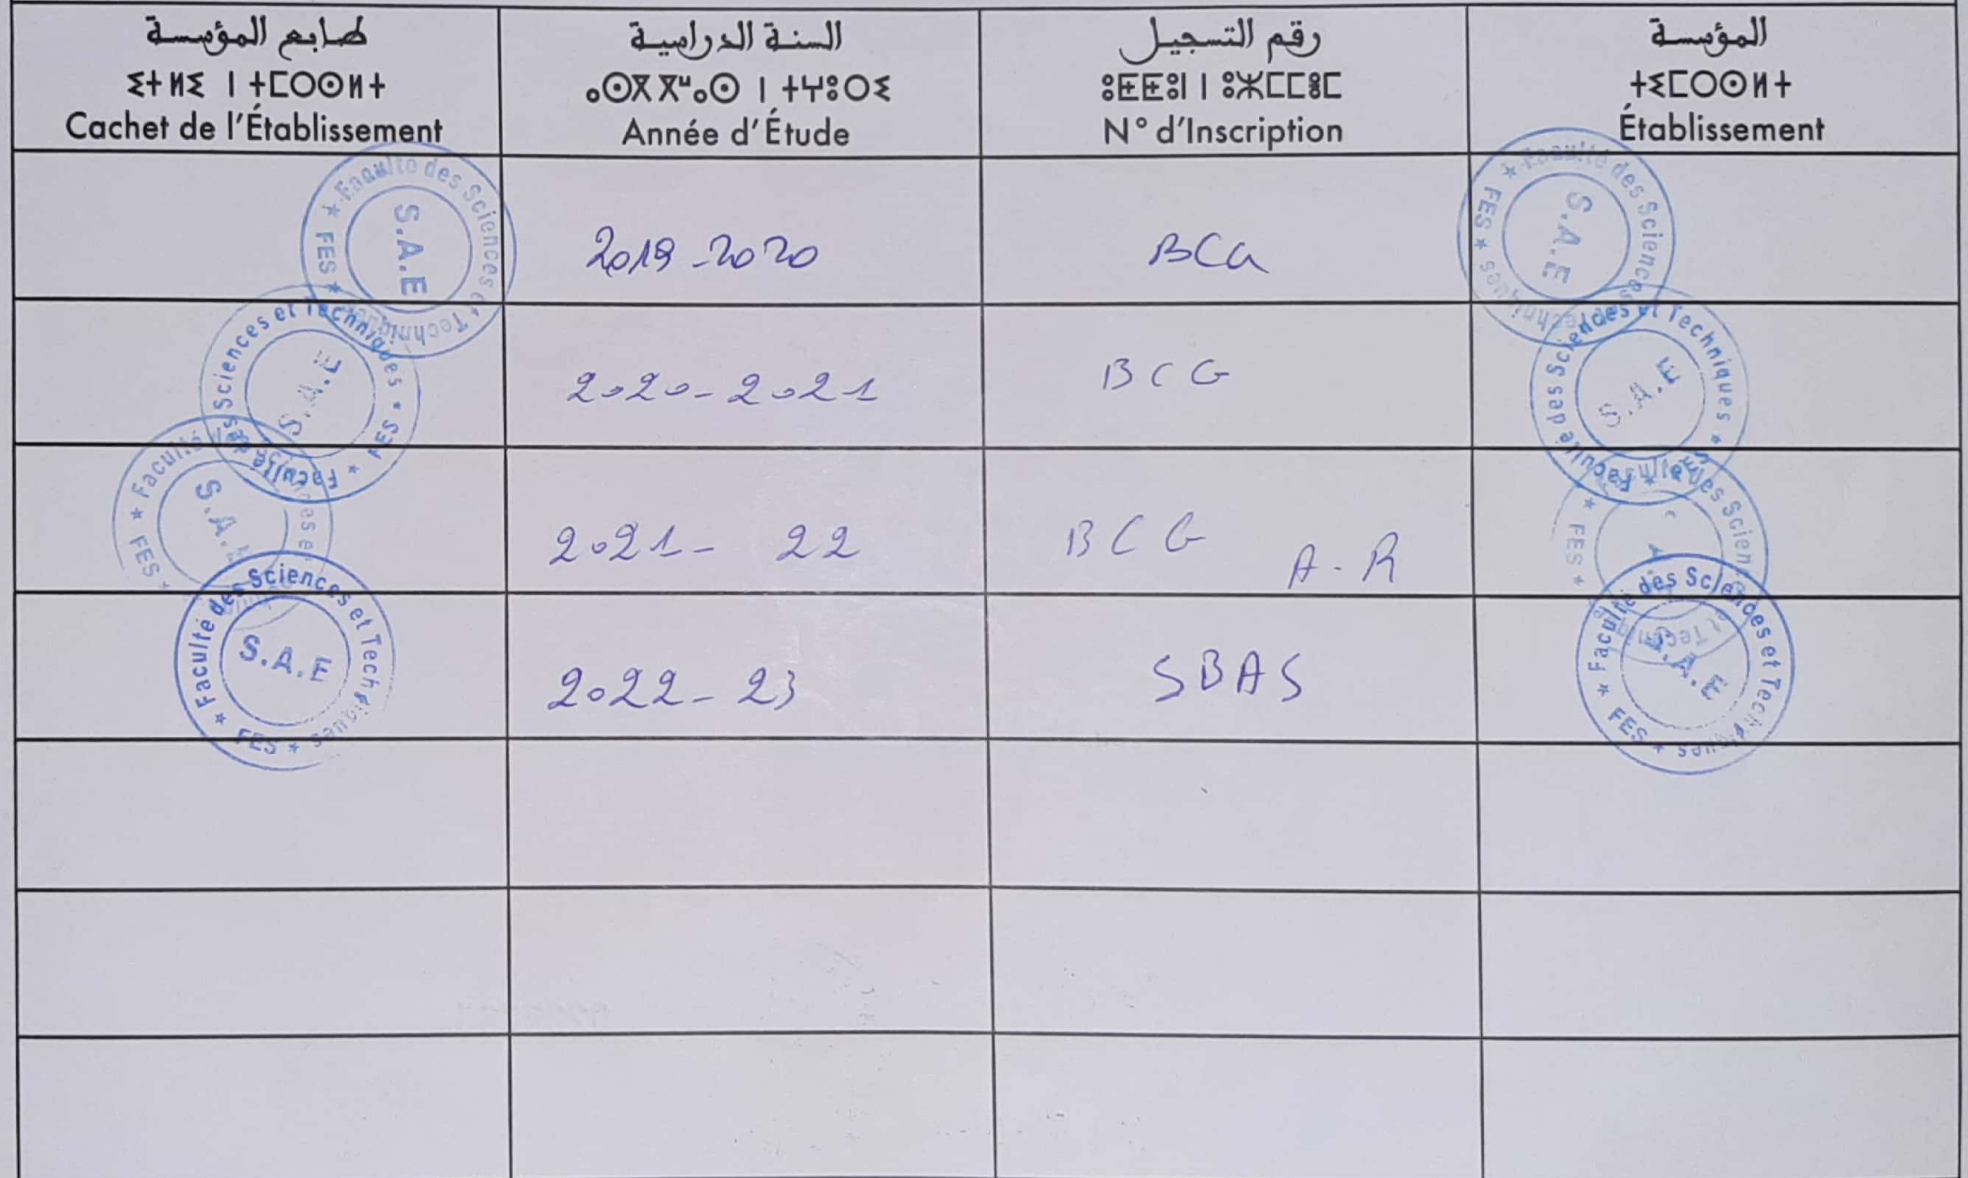 طابع المؤسسة
ⵉⵜⵍⵉ ⵏ ⵜⵎⵔⵙⵍⵜ
Cachet de l'Établissement
السنة الدراسية
ⴰⵙⴳⴳⵯⴰⵙ ⵏ ⵜⵖⵓⵔⵉ
Année d'Étude
رقم التسجيل
ⵓⵟⵟⵓⵏ ⵏ ⵓⵣⵎⵎⵓⵎ
N° d'Inscription
المؤسسة
ⵜⵉⵎⵔⵙⵍⵜ
Établissement
★ Faculté des Sciences et Techniques ★ FES
S.A.E
2019-2020
BCG
★ Faculté des Sciences et Techniques ★ FES
S.A.E
★ Faculté des Sciences et Techniques ★ FES
S.A.E
2020-2021
BCG
★ Faculté des Sciences et Techniques ★ FES
S.A.E
★ Faculté des Sciences et FES ★
S.A.E
2021- 22
BCG A-R
★ FES ★ des Sciences et Techniques
★ Faculté des Sciences et Techniques ★ FES
S.A.E
2022-23
SBAS
★ Faculté des Sciences et Techniques ★ FES
S.A.E